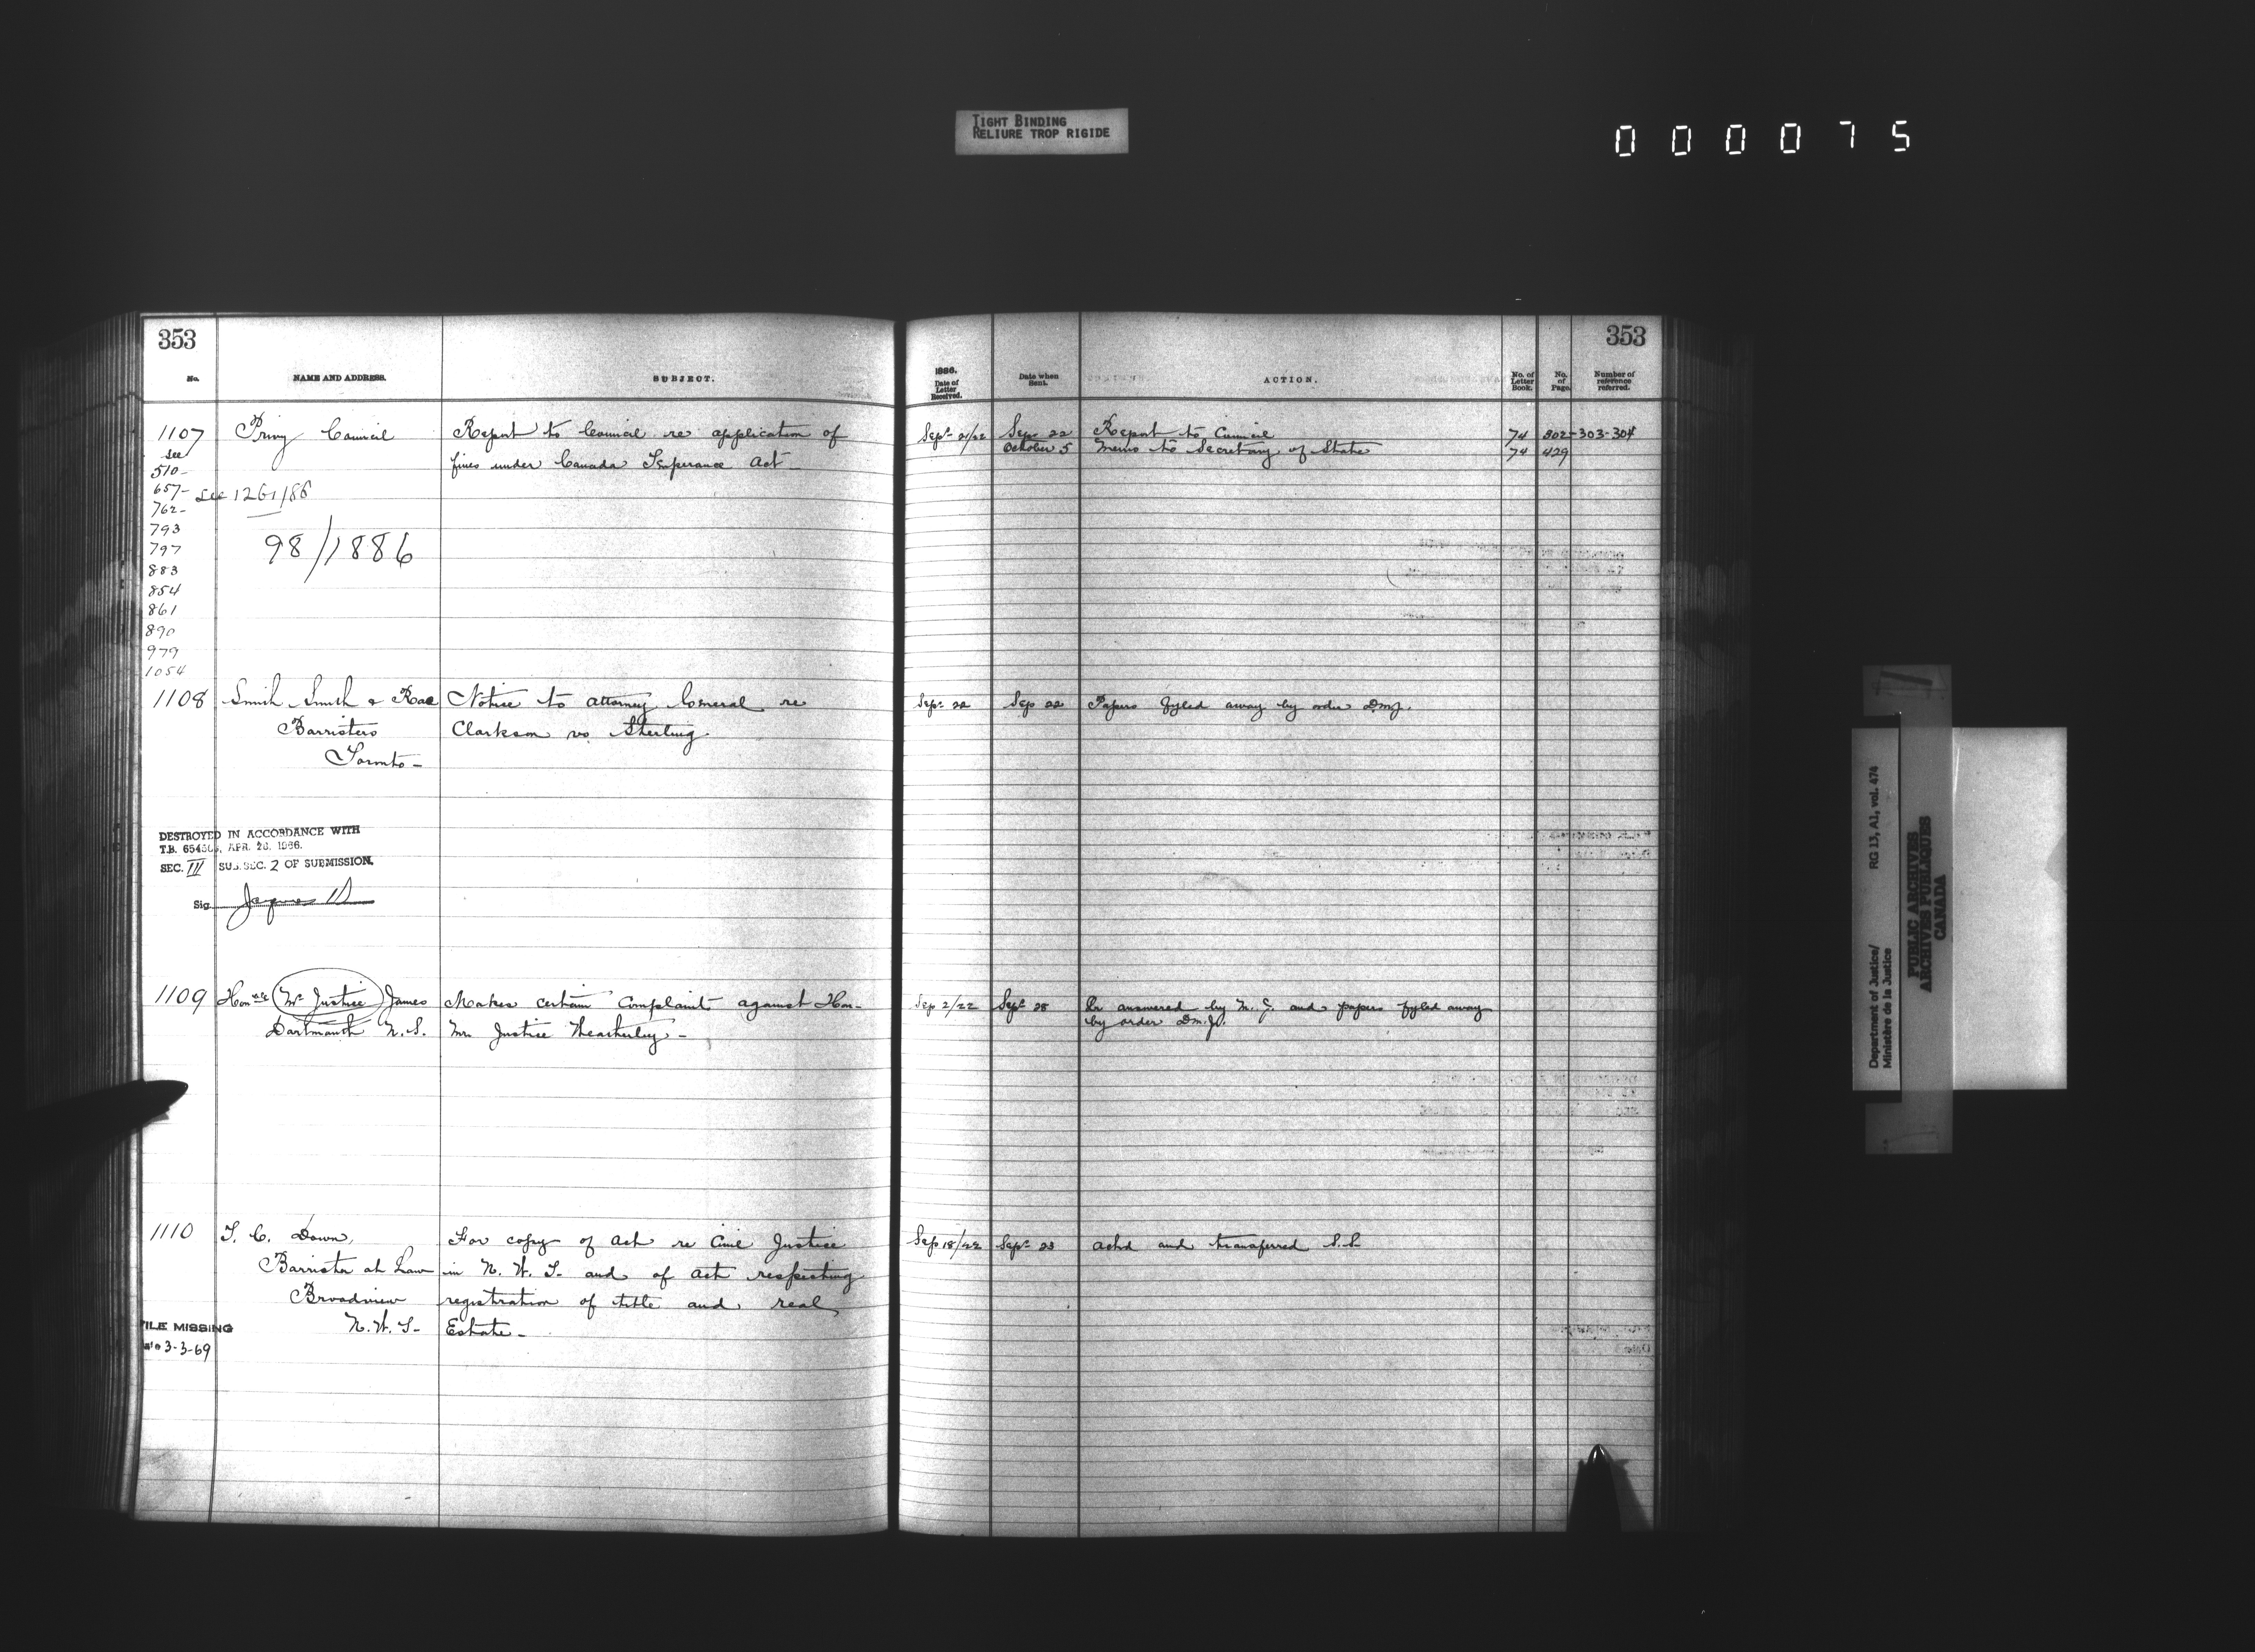 TIGHT BINDING
RELIURE TROP RIGIDE
000075
353
No.
NAME AND ADDRESS.
SUBJECT.
1107
Privy Council
Report to Council re application of
fines under Canada Temperance Act
see
510-
657- see 1261/86
762-
793
797
98/1886
883
854
861
890
979
1054
1108
Smith Smith & Rae
Notice to Attorney General re
Barristers
Clarkson vs Sterling.
Toronto-
DESTROYED IN ACCORDANCE WITH
T.B. APR. 1966.
SEC. III SUB. SEC. 2 OF SUBMISSION.
Sig.
1109
Honble Mr Justice James
Makes certain complaints against Hon-
Dartmouth N.S.
Mr. Justice Weatherbey-
1110
T. C. Down,
For copy of act re Civil Justice
Barrister at Law
in N. W. T. and of act respecting
Broadview
registration of title and real
N.W.T-
Estate-
FILE MISSING
3-3-69
353
1886.
Date of
Letter
Received.
Date when
Sent.
ACTION.
No. of
Letter
Book.
No.
of
Page.
Number of
reference
referred.
Sept 21/22
Sep 22
Report to Council
74
302-303-304
October 5
Memo to Secretary of State
74
429
Sept 22
Sep 22
Papers fyled away by order DMJ.
Sep 2/22
Sept 28
answered by M.J. and papers fyled away
by order DM.J.
Sep 18/22
Sept 23
Actd and transferred S.S.
Department of Justice/
Ministère de la Justice
RG 13, A1, vol. 474
PUBLIC ARCHIVES
ARCHIVES PUBLIQUES
CANADA